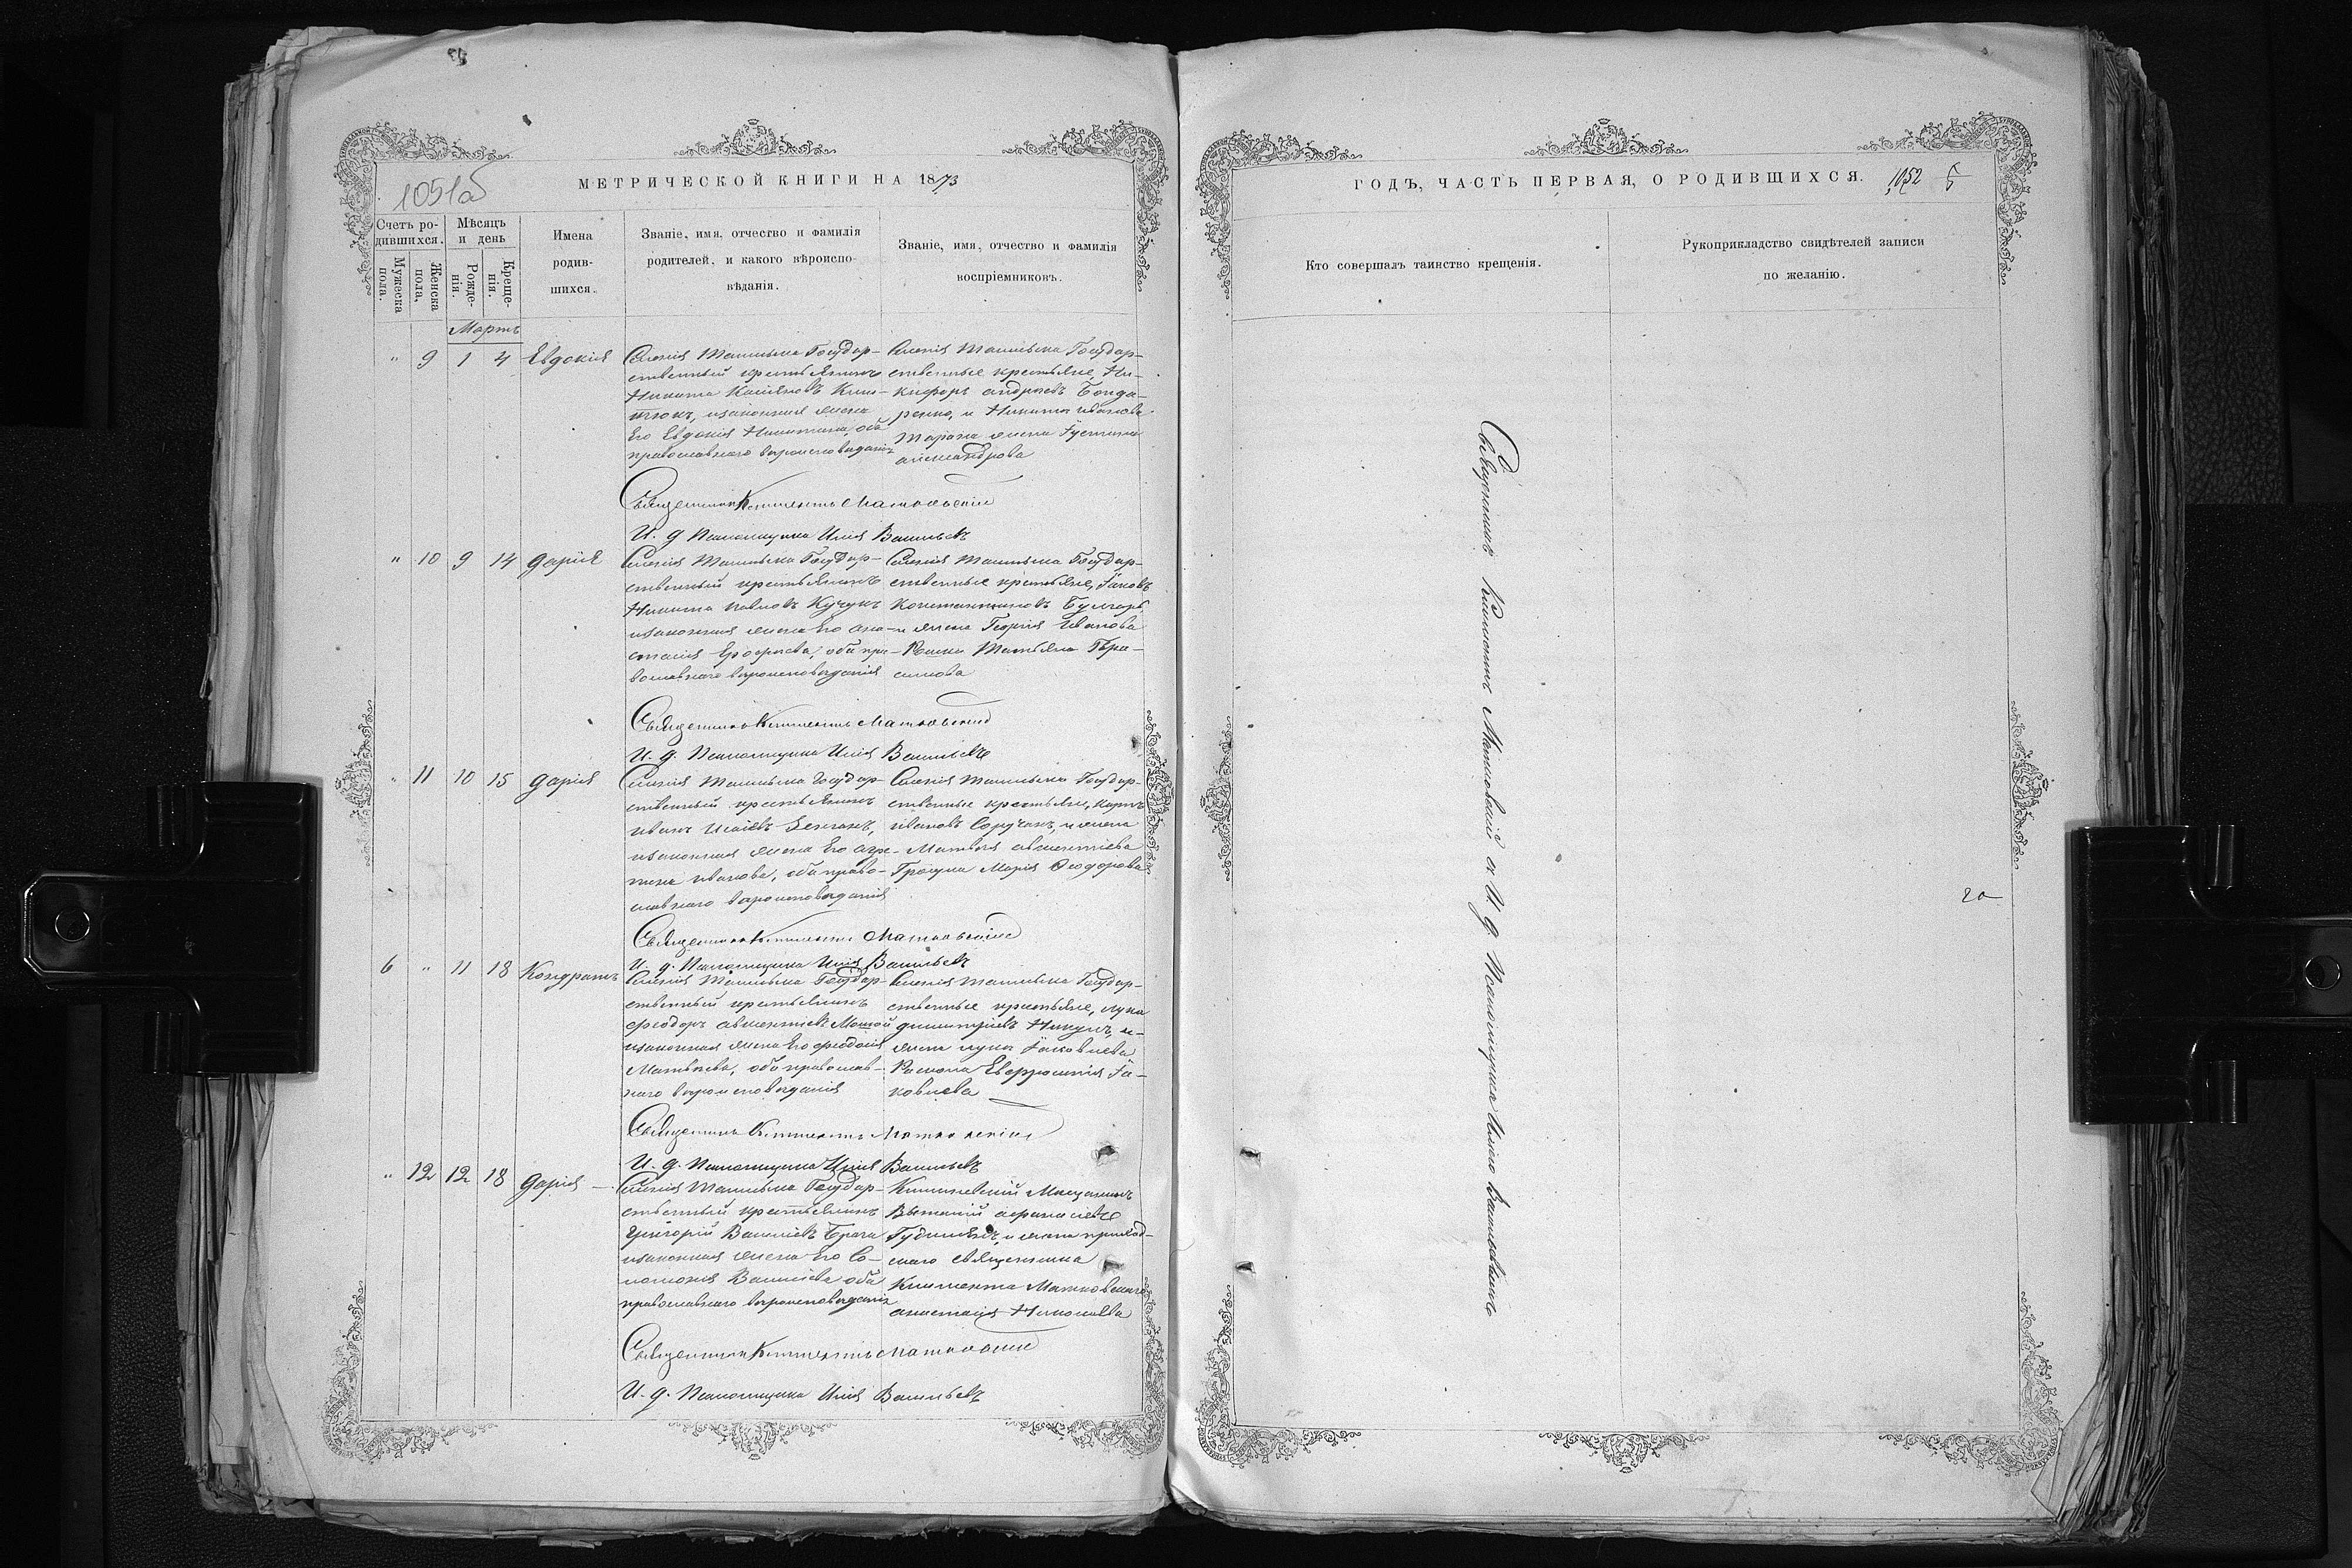 1051об
МЕТРИЧЕСКОЙ КНИГИ НА 1873
Счетъ ро-
дившихся.
Мужеска
пола.
Женска
пола.
Мѣсяцъ
и день
Рожде-
нія.
Креще-
нія.
Имена
родив-
шихся.
Званіе, имя, отчество и фамилія
родителей, и какого вѣроиспо-
вѣданія.
Званіе, имя, отчество и фамилія
воспріемниковъ.
Мартъ
" 9 1 4 Евдокія
Селенія Ташлыка Государ-
ственный крестьянинъ
Никита
изаконная жена
Его Евдокія Никитина, оба
православнаго вѣроисповѣданія
Селенія Ташлыка Государ-
ственные крестьяне, Ни-
кифоръ Андреевъ Бонда-
ренко, и Никиты Иванова
жена Іустина
Александрова
Священникъ Климентъ Матковскій
И. д. Псаломщика Илія Васильевъ
" 10 9 14 Дарія
Селенія Ташлыка Государ-
ственный крестьянинъ
Никита Павловъ Кучукъ
изаконная жена Его Ана-
стасія Ерофеева, оба пра-
вославнаго вѣроисповѣданія
Селенія Ташлыка Государ-
ственные крестьяне, Іаковъ
Константиновъ Булгаръ,
и жена Георгія Иванова
Татьяна Гера-
симова
Священникъ Климентъ Матковскій
И. д. Псаломщика Илія Васильевъ
" 11 10 15 Дарія
Селенія Ташлыка Государ-
ственный крестьянинъ
Иванъ Исаіевъ
изаконная жена Его Агре-
пина Иванова, оба право-
славнаго вѣроисповѣданія
Селенія Ташлыка Государ-
ственные крестьяне, Карпъ
Ивановъ и жена
Матвея Авксентіева
Марія Ѳеодорова
Священникъ Климентъ Матковскій
И. д. Псаломщика Илія Васильевъ
6 " 11 18 Кондратъ
Селенія Ташлыка Государ-
ственный крестьянинъ
Феодоръ Авксентіевъ
изаконная жена Его Феодосія
Матвеева, оба православ-
наго вѣроисповѣданія
Селенія Ташлыка Государ-
ственные крестьяне, Лука
Димитріевъ и
жена Луки Іаковлева
Евфросинія Іа-
ковлева
Священникъ Климентъ Матковскій
И. д. Псаломщика Илія Васильевъ
" 12 12 18 Дарія
Селенія Ташлыка Государ-
ственный крестьянинъ
Григорій Васильевъ Брага
изаконная жена Его Со-
ломонія Васильева оба
православнаго вѣроисповѣданія
Кишиневскій Мещанинъ
Афанасіевъ
и жена приход-
скаго священника
Климента Матковскаго
Анастасія Николаева
Священникъ Климентъ Матковскій
И. д. Псаломщика Илія Васильевъ
ГОДЪ, ЧАСТЬ ПЕРВАЯ, О РОДИВШИХСЯ.
1052
Кто совершалъ таинство крещенія.
Рукоприкладство свидѣтелей записи
по желанію.
Священникъ Климентъ Матковскій съ И. д. Псаломщика Иліею Васильевымъ